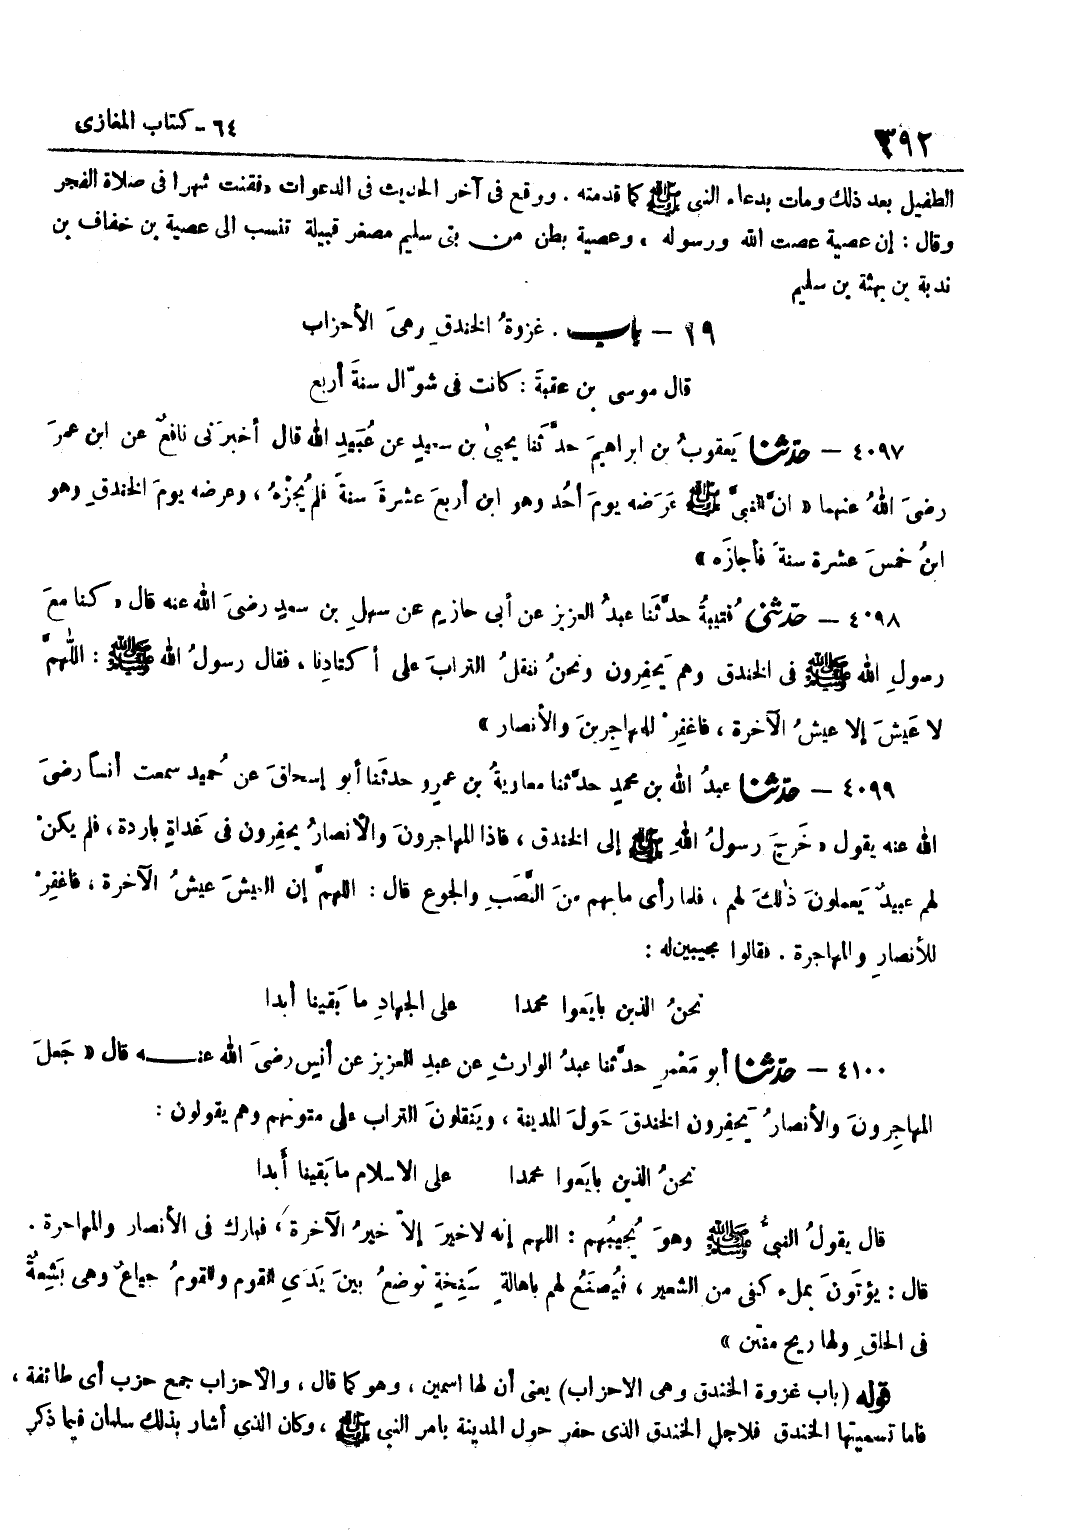 ٣٩٢
٦٤ - كتاب المغازى
الطفيل بعد ذلك ومات بدعاء النبى ﷺ كما قدمته . ووقع فى آخر الحديث فى الدعوات « فقنت شهرا فى صلاة الفجر
وقال : إن عصية عصت الله ورسوله ، وعصية بطن من بنى سليم مصغر قبيلة تنسب الى عصية بن خفاف بن
ندبة بن بهثة بن سليم
٢٩ - باب . غزوةُ الخندقِ وهىَ الأحزاب
قال موسى بن عقبةَ : كانت فى شوّال سنةَ أربع
٤٠٩٧ - حدّثنا يَعقوبُ بن ابراهيمَ حدَّثَنا يحيىٰ بن سعيدٍ عن عُبَيدِ الله قال أخبرَنى نافعٌ عن ابن عمرَ
رضىَ اللهُ عنهما « انَّ النبىَّ ﷺ عَرَضه يومَ أحُد وهو ابن أربعَ عشرةَ سنةً فلم يُجِزْهُ ، وعرضه يومَ الخندقِ وهو
ابنُ خمسَ عشرة سنةً فأجازَه »
٤٠٩٨ - حدّثنى قُتيبةُ حدَّثَنا عبدُ العزيز عن أبى حازيمٍ عن سهلِ بن سعيدٍ رضىَ الله عنه قال « كنا معَ
رسولِ الله ﷺ فى الخندق وهم يَحفِرون ونحنُ ننقلُ الترابَ على أكتادِنا ، فقال رسولُ الله ﷺ : اللّهمَّ
لا عَيشَ إلا عيشُ الآخرة ، فاغفِرْ للمهاجِرينَ والأنصار »
٤٠٩٩ - حدّثنا عبدُ الله بن محمدٍ حدَّثنا معاويةُ بن عمرٍو حدثَنا أبو إسحاقَ عن حُميد سمعت أنساً رضىَ
الله عنه يقول « خَرجَ رسولُ اللهِ ﷺ إلى الخندق ، فاذا المهاجرونَ والأنصارُ يحفِرون فى غَداةٍ باردة ، فلم يكنْ
لهم عبيدٌ يَعملونَ ذٰلكَ لهم ، فلما رأى مابهم منَ النَّصَبِ والجوع قال : اللهمَّ إن العيشَ عيشُ الآخرة ، فاغفِرْ
للأنصارِ والمهاجرة . فقالوا مجيبين له :
نحنُ الذين بايَعوا محمدا على الجهادِ ما بَقينا أبدا
٤١٠٠ - حدّثنا أبو مَعْمرٍ حدَّثنا عبدُ الوارثِ عن عبدِ العزيز عن أنسٍ رضىَ الله عنه قال « جَعلَ
المهاجِرونَ والأنصارُ يَحفِرون الخندقَ حَولَ المدينة ، ويَنقلونَ التراب على متونهم وهم يقولون :
نحنُ الذين بايَعوا محمدا على الاسلام ما بَقينا أَبدا
قال يقولُ النبىُّ ﷺ وهوَ يُجيبُهم : اللهم إنه لا خيرَ إلاّ خيرُ الآخرة ، فبارك فى الأنصار والمهاجرة .
قال : يؤتَونَ بملء كفى من الشعير ، فيُصنَعُ لهم باهالةٍ سَنِخةٍ توضعُ بينَ يَدَىِ القوم والقومُ جياعٌ وهى بَشِعةٌ
فى الحلقِ ولها ريح منتن »
قوله (باب غزوة الخندق وهى الاحزاب) يعنى أن لها اسمين ، وهو كما قال ، والأحزاب جمع حزب أى طائفة ،
فاما تسميتها الخندق فلاجل الخندق الذى حفر حول المدينة بامر النبى ﷺ ، وكان الذى أشار بذلك سلمان فيما ذكر